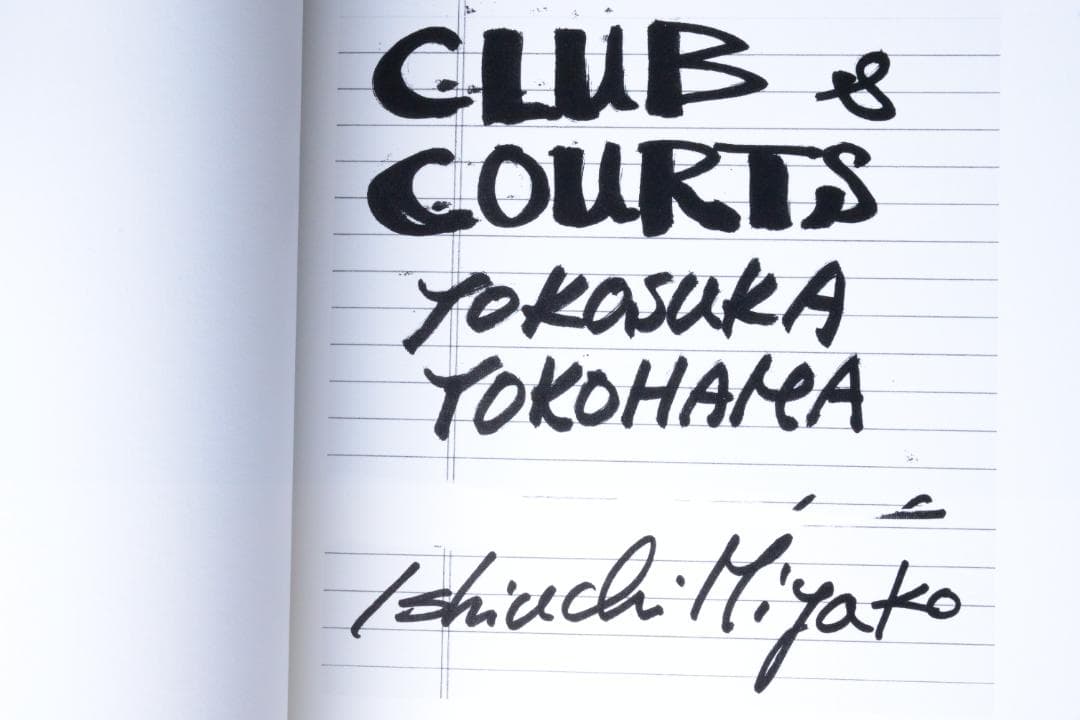 CLUB &
COURTS
YOKOSUKA
YOKOHAMA
Ishiuchi Miyako